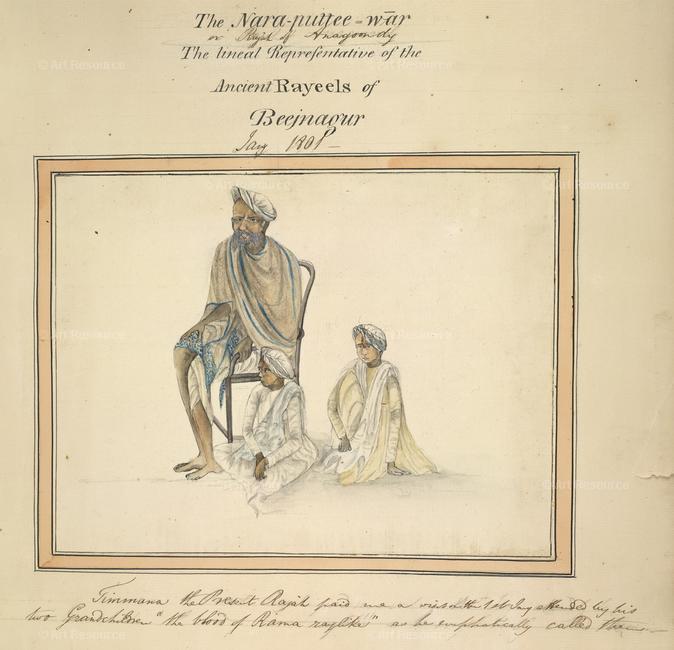 The Nara-puttee-wār
or Rajah of Anagoondy
The lineal Representative of the
Ancient Rayeels of
Beejnagur
Jany 1801 —
Timmana the Present Rajah paid me a visit on the Jany attended by his
two Grandchildren "the blood of Rama raylike" as he emphatically called them —
© Art Resource